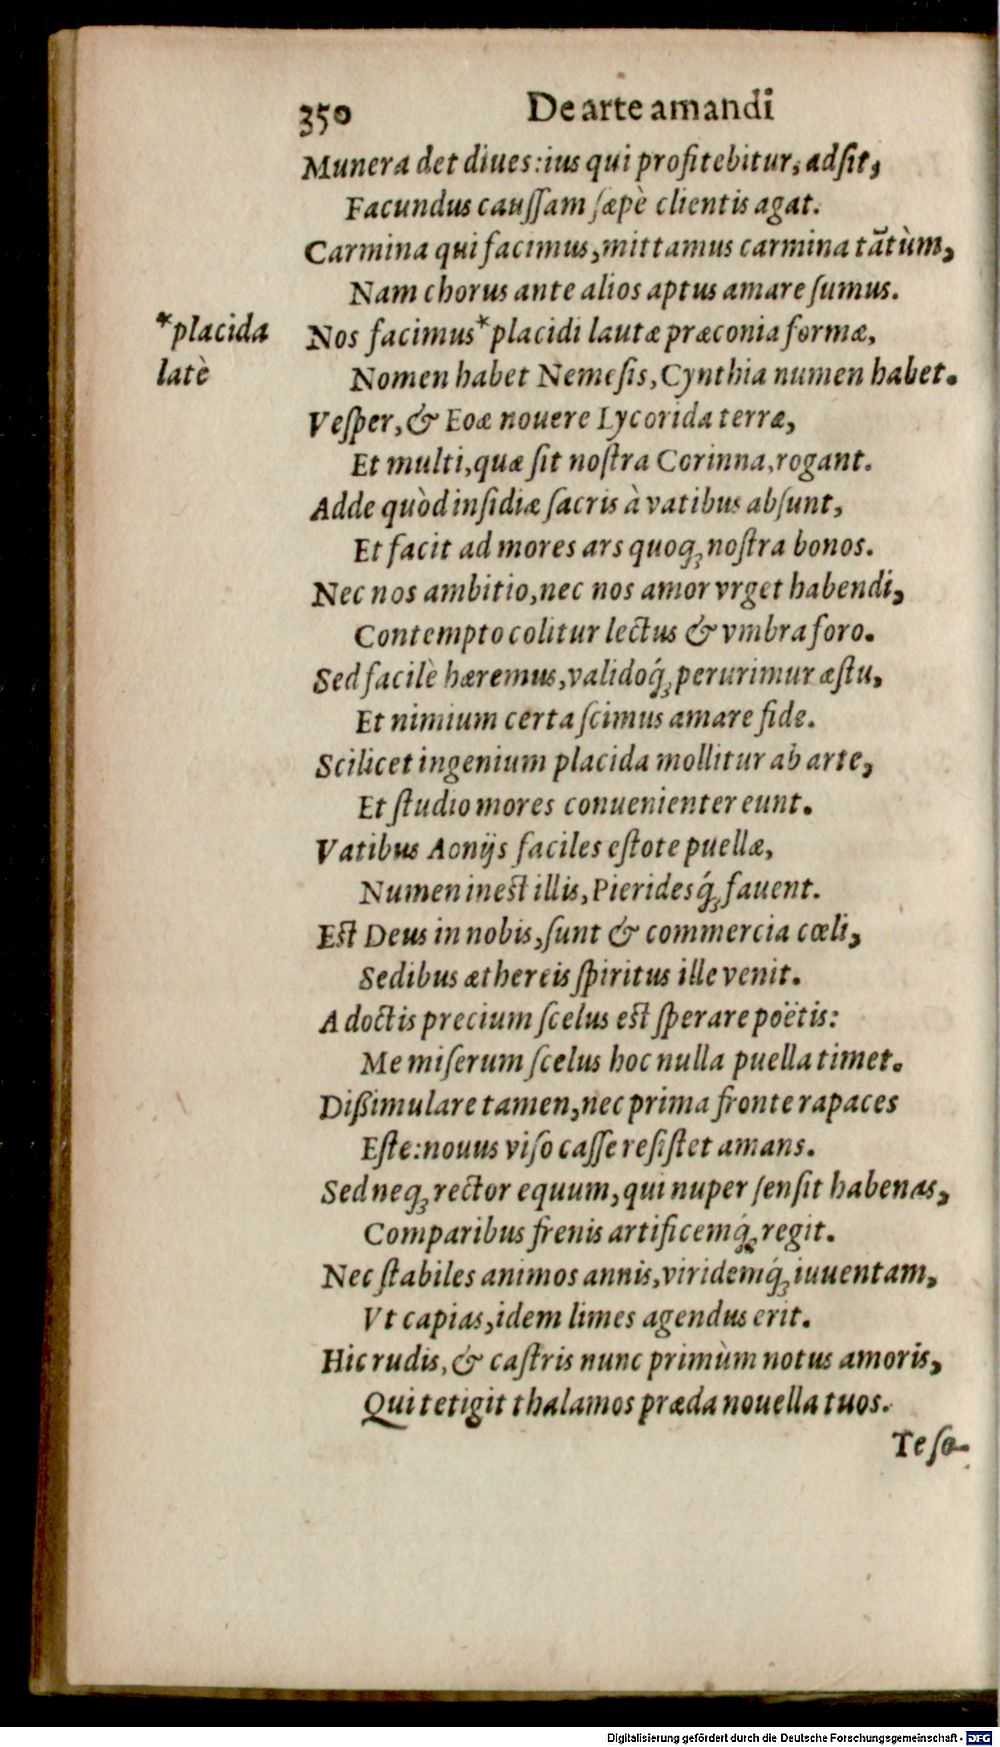 350 De arte amandi
Munera det diues: ius qui profitebitur, adſit,
Facundus cauſſam ſæpè clientis agat.
Carmina qui facimus, mittamus carmina tãtùm,
Nam chorus ante alios aptus amare ſumus.
*placida
latè
Nos facimus *placidi lautæ præconia formæ,
Nomen habet Nemeſis, Cynthia numen habet.
Veſper, & Eoæ nouere Lycorida terræ,
Et multi, quæ ſit noſtra Corinna, rogant.
Adde quòd inſidiæ ſacris à vatibus abſunt,
Et facit ad mores ars quoq; noſtra bonos.
Nec nos ambitio, nec nos amor vrget habendi,
Contempto colitur lectus & vmbra foro.
Sed facilè hæremus, validoq́; perurimur æſtu,
Et nimium certa ſcimus amare fide.
Scilicet ingenium placida mollitur ab arte,
Et ſtudio mores conuenienter eunt.
Vatibus Aonijs faciles eſtote puellæ,
Numen ineſt illis, Pieridesq́; fauent.
Eſt Deus in nobis, ſunt & commercia cœli,
Sedibus æthereis ſpiritus ille venit.
A doctis precium ſcelus eſt ſperare poëtis:
Me miſerum ſcelus hoc nulla puella timet.
Dißimulare tamen, nec prima fronte rapaces
Eſte: nouus viſo caſſe reſiſtet amans.
Sed neq; rector equum, qui nuper ſenſit habenas,
Comparibus frenis artificemq́; regit.
Nec ſtabiles animos annis, viridemq́; iuuentam,
Vt capias, idem limes agendus erit.
Hic rudis, & caſtris nunc primùm notus amoris,
Qui tetigit thalamos præda nouella tuos.
Te ſo-
Digitalisierung gefördert durch die Deutsche Forschungsgemeinschaft - DFG